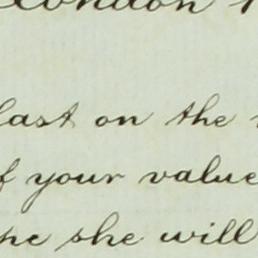 London
last on the
of your value
she will